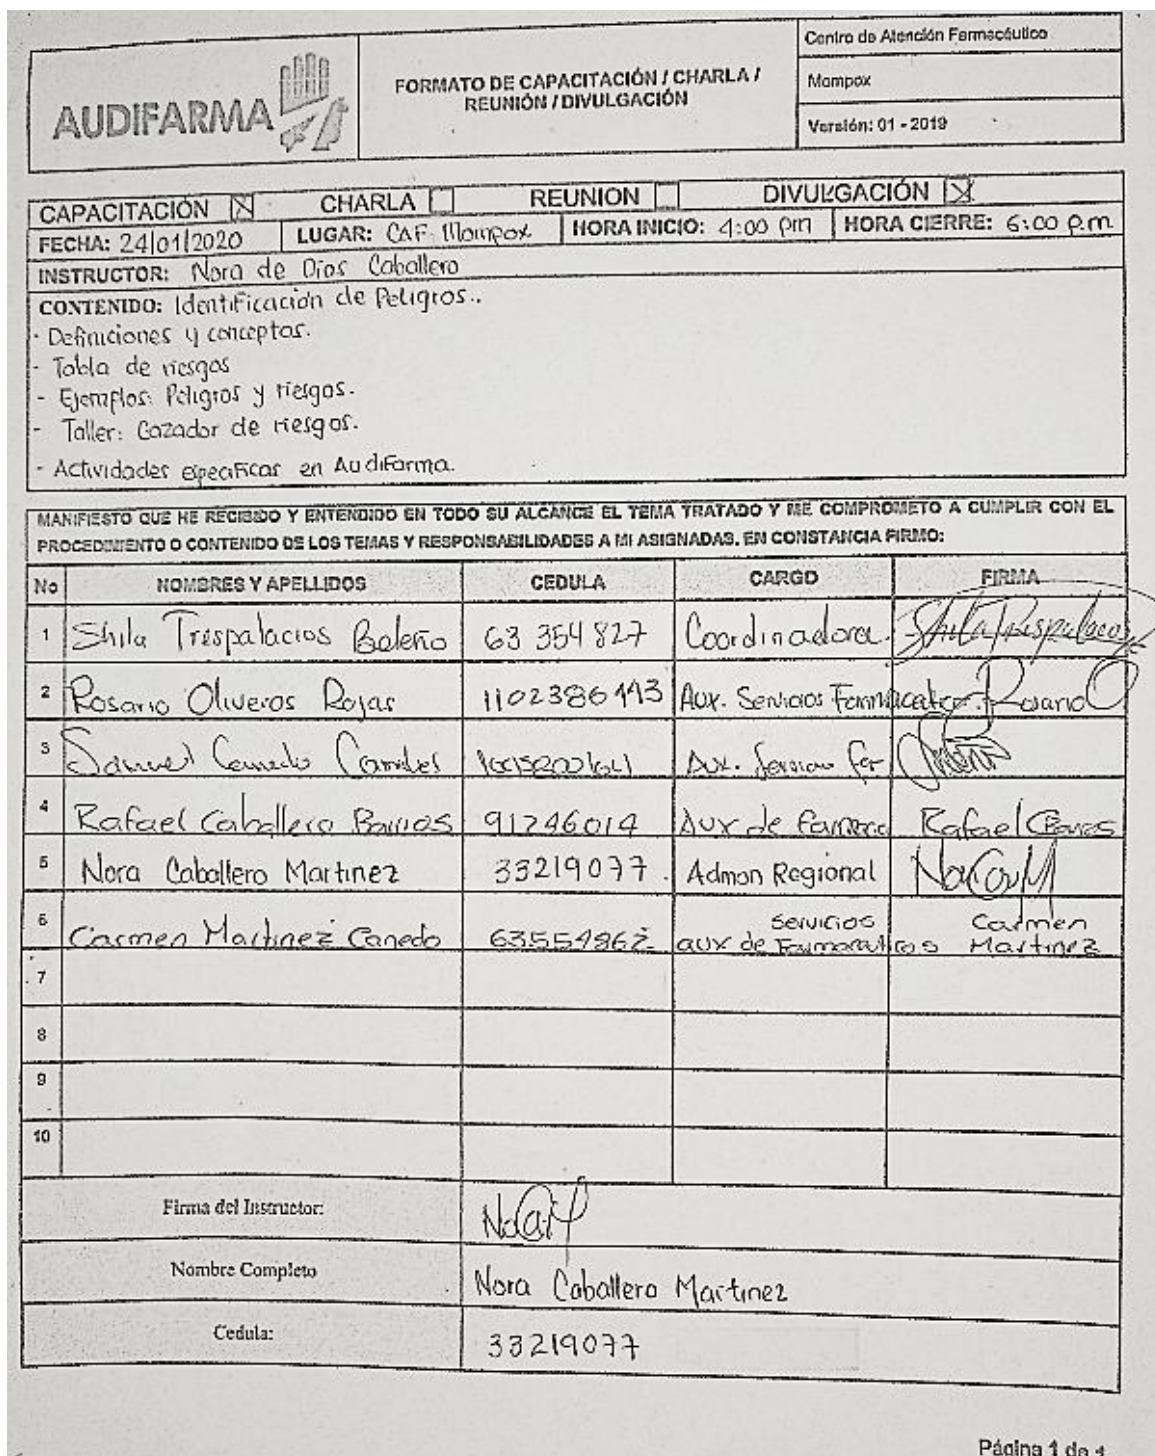 AUDIFARMA
FORMATO DE CAPACITACIÓN / CHARLA /
REUNIÓN / DIVULGACIÓN
Centro de Atención Farmacéutico
Mompox
Versión: 01 - 2019
CAPACITACIÓN X CHARLA REUNION DIVULGACIÓN X
FECHA: 24/01/2020 LUGAR: CAF Mompox HORA INICIO: 4:00 pm HORA CIERRE: 6:00 p.m.
INSTRUCTOR: Nora de Dios Caballero
CONTENIDO: Identificación de Peligros..
- Definiciones y conceptos.
- Tabla de riesgos
- Ejemplos: Peligros y riesgos.
- Taller: Cazador de riesgos.
- Actividades especificas en Audifarma.
MANIFIESTO QUE HE RECIBIDO Y ENTENDIDO EN TODO SU ALCANCE EL TEMA TRATADO Y ME COMPROMETO A CUMPLIR CON EL
PROCEDIMIENTO O CONTENIDO DE LOS TEMAS Y RESPONSABILIDADES A MI ASIGNADAS. EN CONSTANCIA FIRMO:
No NOMBRES Y APELLIDOS CEDULA CARGO FIRMA
1 Shila Trespalacios Beleño 63 354 827 Coordinadora. Shila Trespalacios
2 Rosario Oliveros Rojas Aux. Servicios Rosario O
3 Samuel Aux.
4 Rafael Caballero Barrios 91246014 Aux de Rafael
5 Nora Caballero Martinez 33219077. Admon Regional
6 Carmen Martinez Canedo 63554962 servicios aux de Carmen Martinez
7
8
9
10
Firma del Instructor:
Nombre Completo Nora Caballero Martinez
Cedula: 33219077
Página 1 de 1